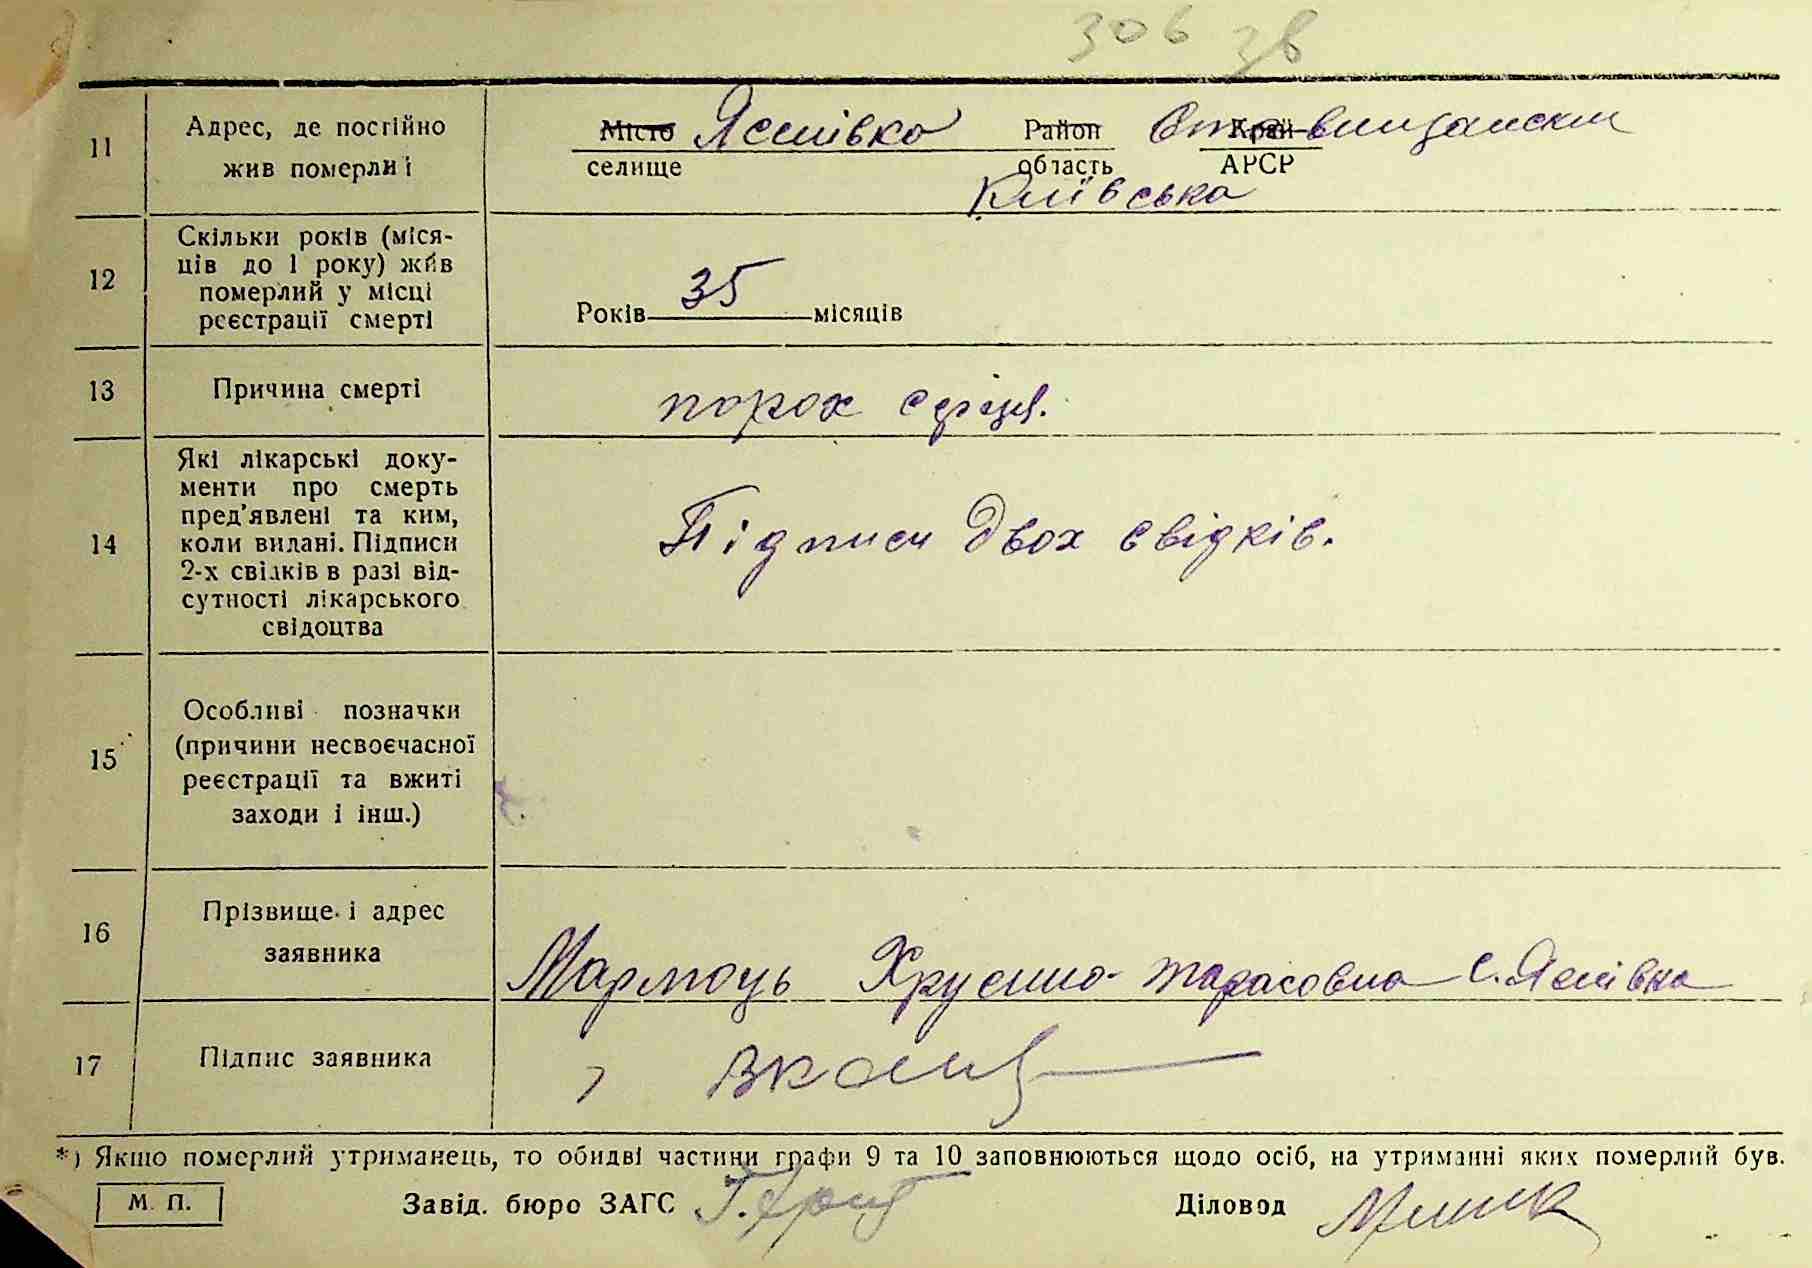 306 зв
11 Адрес, де постійно жив померлиі Місто Яснівка Район Ставищанский
селище область Край АРСР
Київська
12 Скільки років (міся-
ців до 1 року) жив
померлий у місці
реєстрації смерті Років 35 місяців
13 Причина смерті порок сірця.
14 Які лікарські доку-
менти про смерть
пред’явлені та ким,
коли видані. Підписи
2-х свідків в разі від-
сутності лікарського
свідоцтва Підписи двох свідків.
15 Особливі позначки
(причини несвоєчасної
реєстрації та вжиті
заходи і інш.)
16 Прізвище і адрес
заявника Мармоць Хрусина Тарасовна с. Яснівка
17 Підпис заявника
*) Якщо померлий утриманець, то обидві частини графи 9 та 10 заповнюються щодо осіб, на утриманні яких померлий був.
М. П. Завід. бюро ЗАГС Діловод